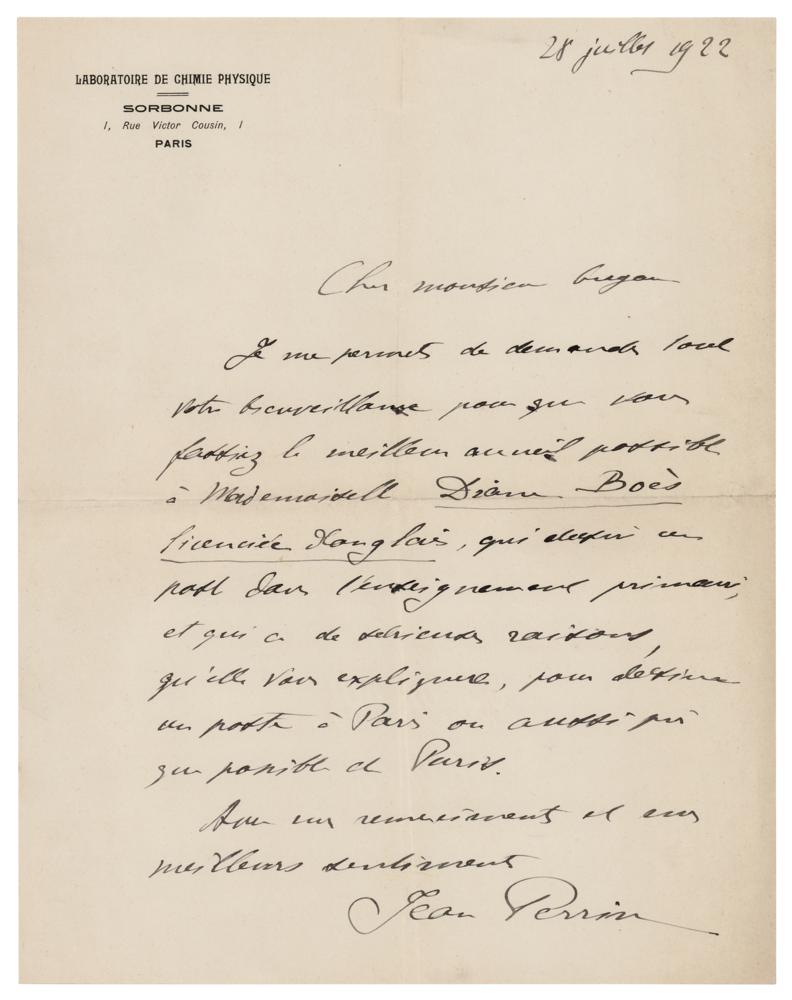 28 juillet 1922
LABORATOIRE DE CHIMIE PHYSIQUE
SORBONNE
1, Rue Victor Cousin, 1
PARIS
Cher monsieur
Je me permets de demander toute
votre bienveillance pour que vous
fassiez le meilleur accueil possible
à Mademoiselle Diane Boès
licenciée d'anglais, qui désire un
poste dans l'enseignement primaire,
et qui a de sérieuses raisons,
qu'elle vous expliquera, pour désirer
un poste à Paris ou aussi près
que possible de Paris.
Avec mes remerciements et mes
meilleurs sentiments
Jean Perrin